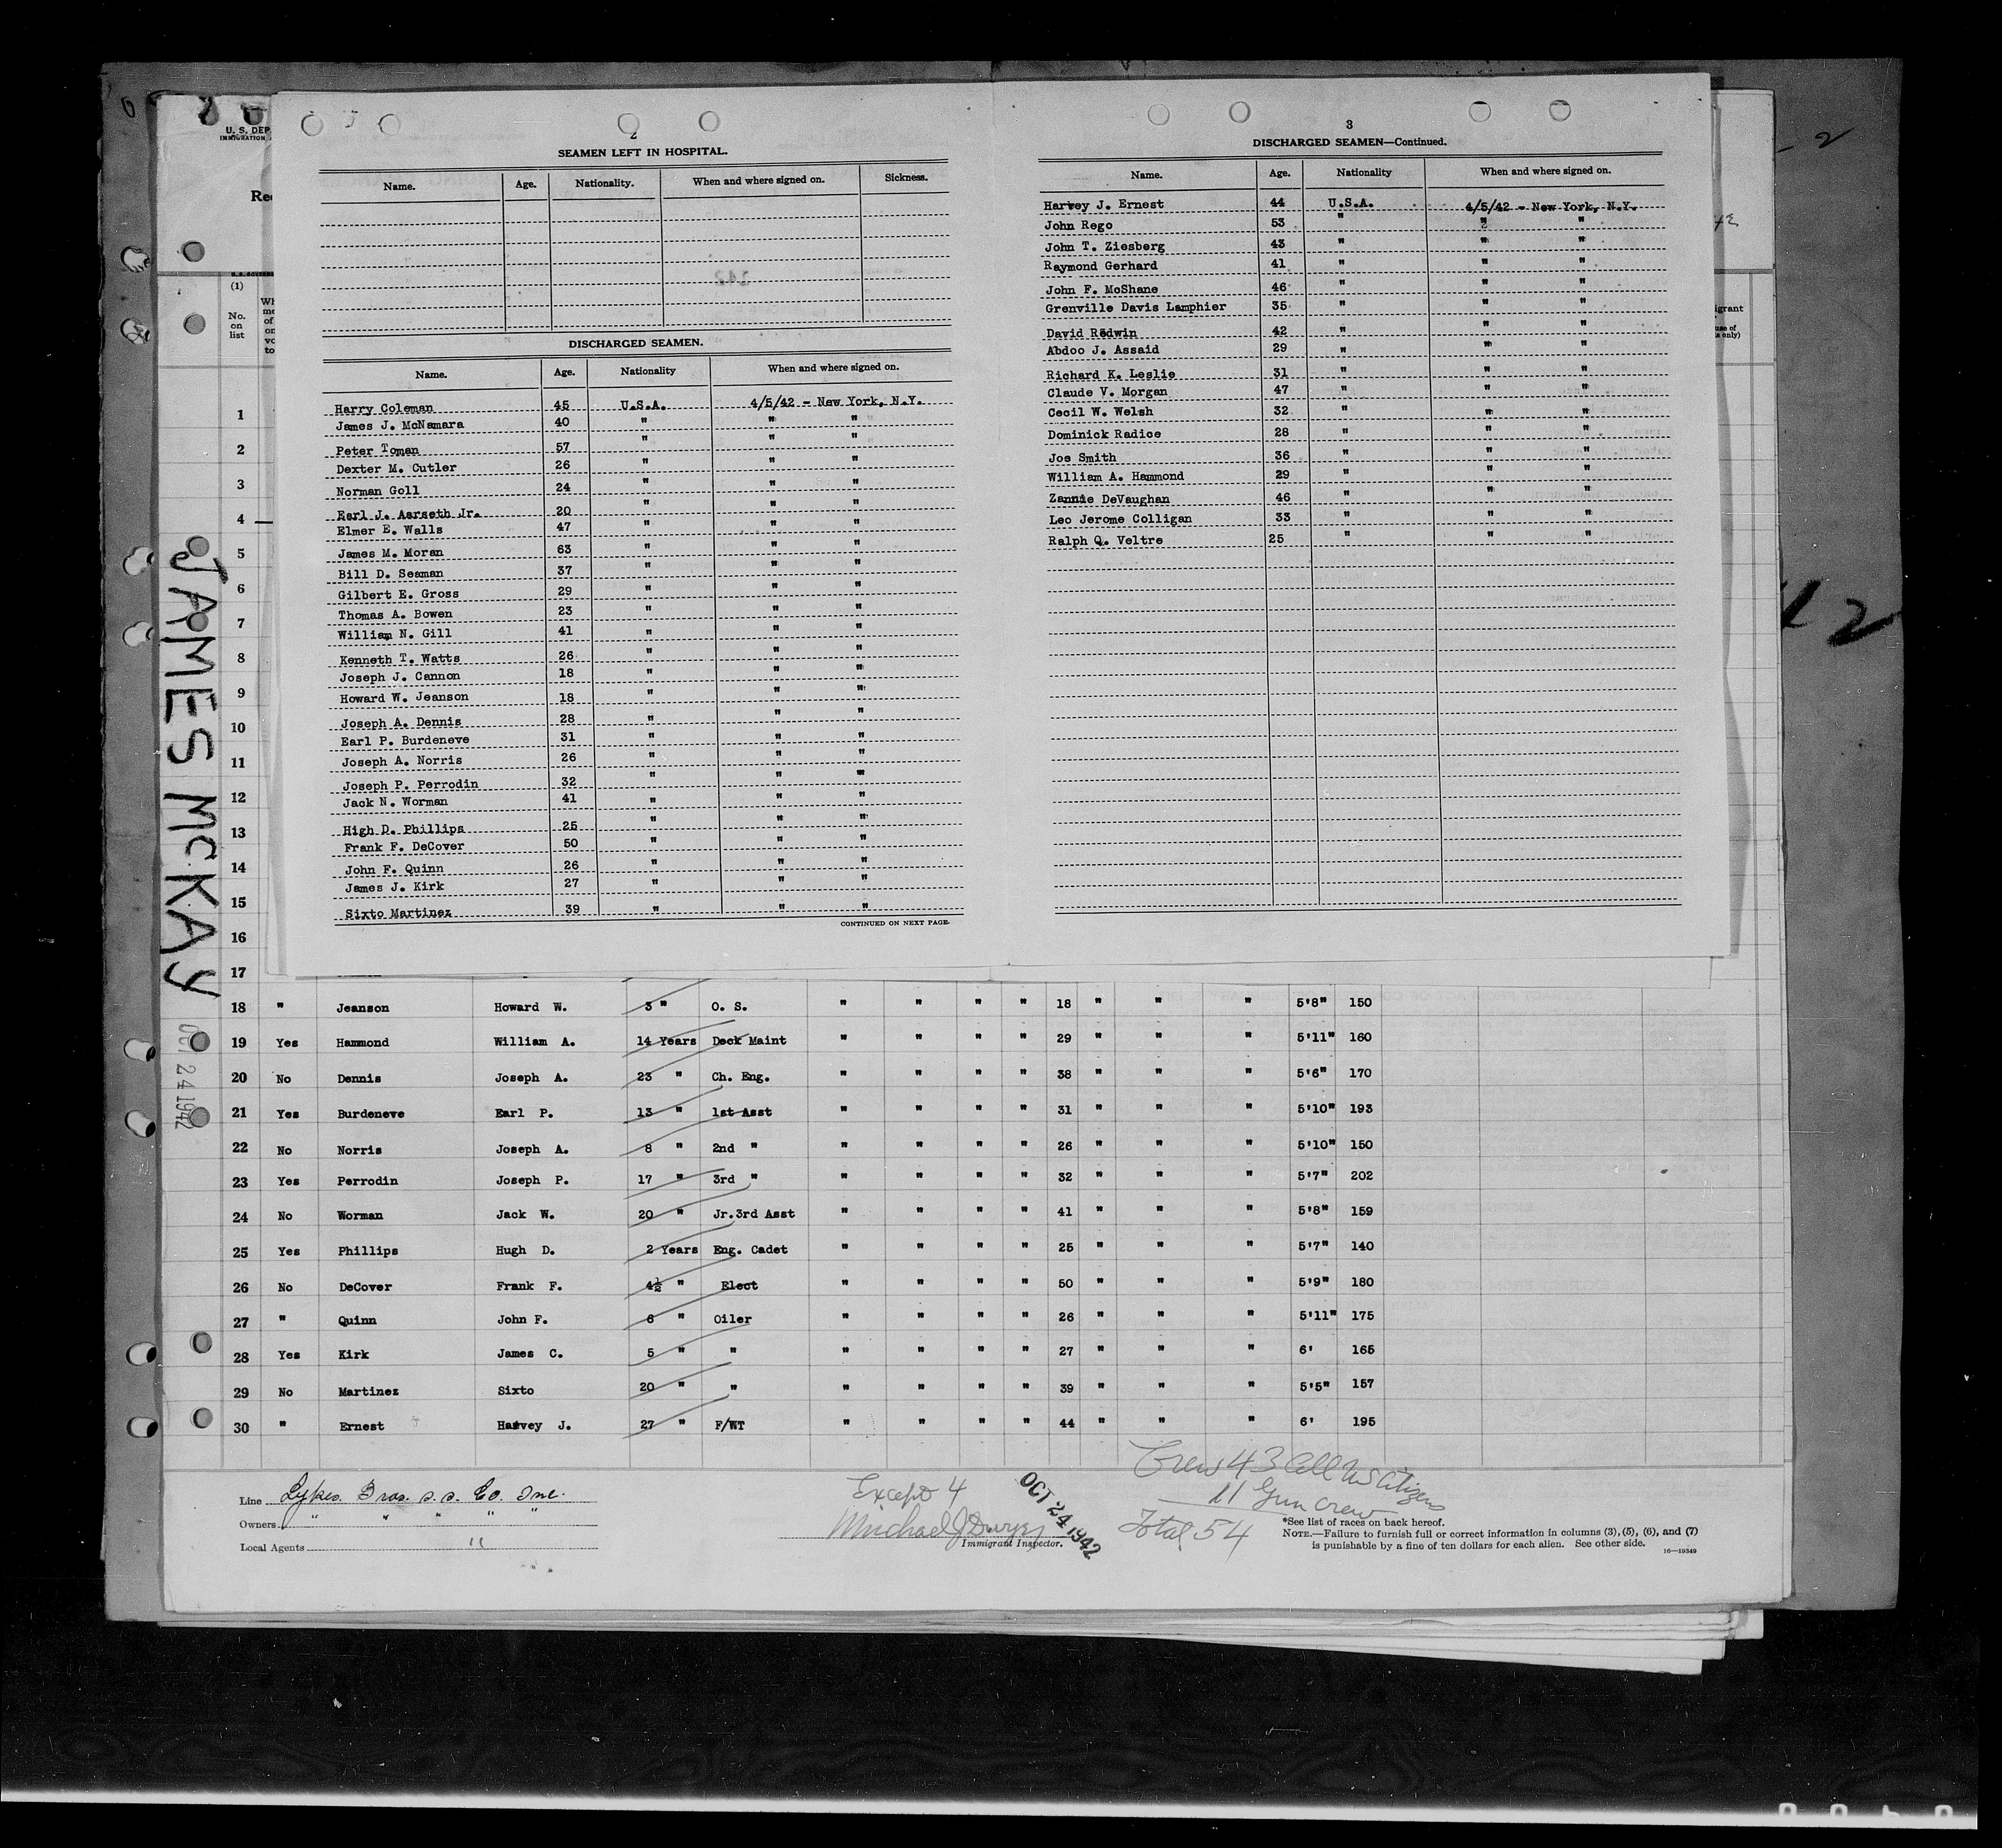 U. S. DEP
IMMIGRATION
Rec
2
SEAMEN LEFT IN HOSPITAL.
Name. Age. Nationality. When and where signed on. Sickness.
DISCHARGED SEAMEN.
Name. Age. Nationality When and where signed on.
Harry Coleman 45 U.S.A. 4/5/42 - New York, N.Y.
James J. McNamara 40 " " "
Peter Toman 57 " " "
Dexter M. Cutler 26 " " "
Norman Goll 24 " " "
Earl J. Aarseth Jr. 20 " " "
Elmer E. Walls 47 " " "
James M. Moran 63 " " "
Bill D. Seaman 37 " " "
Gilbert E. Gross 29 " " "
Thomas A. Bowen 23 " " "
William N. Gill 41 " " "
Kenneth T. Watts 26 " " "
Joseph J. Cannon 18 " " "
Howard W. Jeanson 18 " " "
Joseph A. Dennis 28 " " "
Earl P. Burdeneve 31 " " "
Joseph A. Norris 26 " " "
Joseph P. Perrodin 32 " " "
Jack N. Worman 41 " " "
High D. Phillips 25 " " "
Frank F. DeCover 50 " " "
John F. Quinn 26 " " "
James J. Kirk 27 " " "
Sixto Martinez 39 " " "
CONTINUED ON NEXT PAGE.
3
DISCHARGED SEAMEN—Continued.
Name. Age. Nationality When and where signed on.
Harvey J. Ernest 44 U.S.A. 4/5/42 - New York, N.Y.
John Rego 53 " " "
John T. Ziesberg 43 " " "
Raymond Gerhard 41 " " "
John F. McShane 46 " " "
Grenville Davis Lamphier 35 " " "
David Redwin 42 " " "
Abdoo J. Assaid 29 " " "
Richard K. Leslie 31 " " "
Claude V. Morgan 47 " " "
Cecil W. Welsh 32 " " "
Dominick Radice 28 " " "
Joe Smith 36 " " "
William A. Hammond 29 " " "
Zannie DeVaughan 46 " " "
Leo Jerome Colligan 33 " " "
Ralph Q. Veltre 25 " " "
(1)
No. on list
1
2
3
4
5
6
7
8
9
10
11
12
13
14
15
16
17
18 " Jeanson Howard W. 3 " O. S. " " " " 18 " " " 5'8" 150
19 Yes Hammond William A. 14 Years Deck Maint " " " " 29 " " " 5'11" 160
20 No Dennis Joseph A. 23 " Ch. Eng. " " " " 38 " " " 5'6" 170
21 Yes Burdeneve Earl P. 13 " 1st Asst " " " " 31 " " " 5'10" 193
22 No Norris Joseph A. 8 " 2nd " " " " " 26 " " " 5'10" 150
23 Yes Perrodin Joseph P. 17 " 3rd " " " " " 32 " " " 5'7" 202
24 No Worman Jack W. 20 " Jr.3rd Asst " " " " 41 " " " 5'8" 159
25 Yes Phillips Hugh D. 2 Years Eng. Cadet " " " " 25 " " " 5'7" 140
26 No DeCover Frank F. 4½ " Elect " " " " 50 " " " 5'9" 180
27 " Quinn John F. 6 " Oiler " " " " 26 " " " 5'11" 175
28 Yes Kirk James C. 5 " " " " " " 27 " " " 6' 165
29 No Martinez Sixto 20 " " " " " " 39 " " " 5'5" 157
30 " Ernest Harvey J. 27 " F/WT " " " " 44 " " " 6' 195
JAMES McKAY
OCT 24 1942
42
Line Lykes Bros. S.S. Co. Inc.
Owners " " " " "
Local Agents "
Except 4
Michael J Dwyer
Immigrant Inspector.
OCT 24 1942
Crew 43 all US Citizens
11 Gun crew
Total 54
*See list of races on back hereof.
NOTE.—Failure to furnish full or correct information in columns (3), (5), (6), and (7)
is punishable by a fine of ten dollars for each alien. See other side.
16—19349